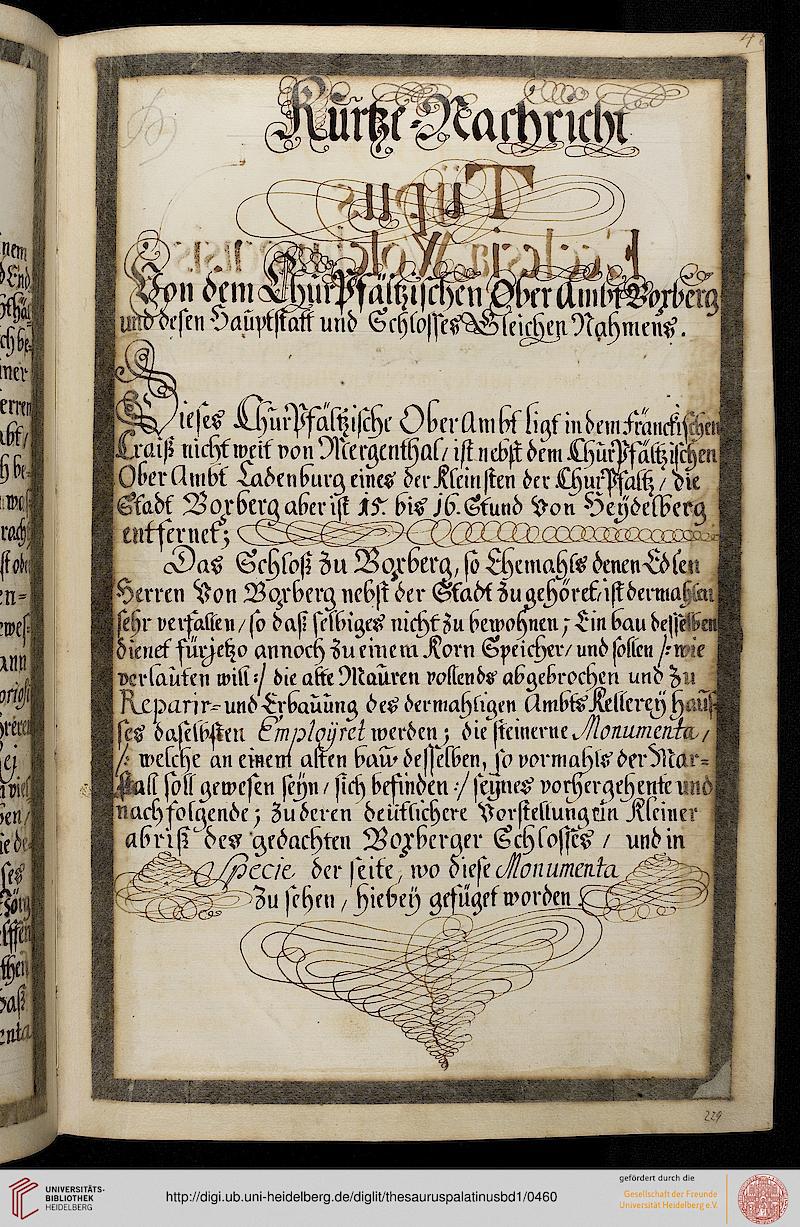 Kurtze-Nachricht
Tÿpus
Ecclesia
Von dem ChurPfältzischen OberAmbt Boxberg
und desen Hauptstatt und Schlosses Gleichen Nahmens.
Dieses ChurPfältzische OberAmbt ligt in dem Fränckischen
Craiß nicht weit von Mergenthal / ist nebst dem ChurPfältzischen
OberAmbt Ladenburg eines der Kleinsten der ChurPfaltz / die
Stadt Boxberg aber ist 15. bis 16. Stund Von Heÿdelberg
entfernet;
Das Schloß zu Boxberg, so Ehemahls denen Edlen
Herren Von Boxberg nebst der Stadt zugehöret / ist dermahlen
sehr verfallen / so daß selbiges nicht zu bewohnen; Ein bau desselben
dienet fürjetzo annoch zu einem Korn Speicher / und sollen /: wie
verlauten will :/ die alte Mauren vollends abgebrochen und zu
Reparir= und Erbauung des dermahligen Ambts Kellereÿ Hauß=
ses daselbsten Emploÿret werden; die steinerne Monumenta /
/: welche an einem alten bau desselben, so vormahls der Mar=
stall soll gewesen seÿn / sich befinden :/ seÿnes vorhergehente und
nachfolgende; zu deren deutlichere Vorstellung ein Kleiner
abriß des gedachten Boxberger Schlosses / und in
Specie der seite, wo diese Monumenta
zu sehen / hiebeÿ gefüget worden.
229
UNIVERSITÄTS-
BIBLIOTHEK
HEIDELBERG
http://digi.ub.uni-heidelberg.de/diglit/thesauruspalatinusbd1/0460
gefördert durch die
Gesellschaft der Freunde
Universität Heidelberg e.V.